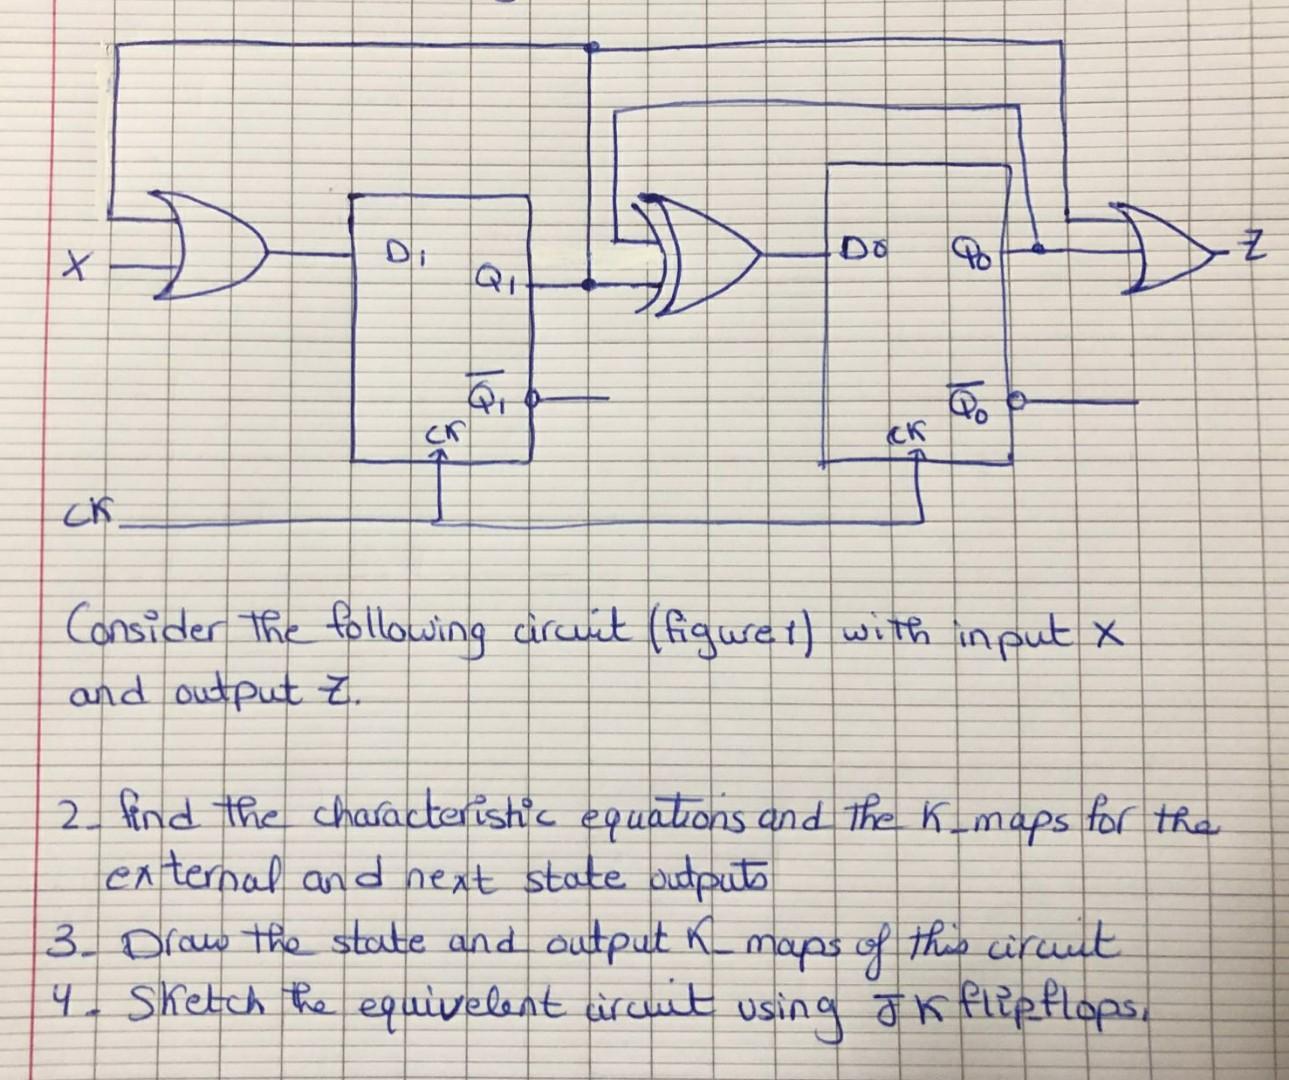 X
D₁
Q₁
Q̅₁
CK
D0
Q₀
Q̅₀
CK
Z
CK
Consider the following circuit (figure 1) with input X
and output Z.
2- find the characteristic equations and the K-maps for the
external and next state outputs
3- Draw the state and output K-maps of this circuit
4- Sketch the equivelent circuit using JK flipflops.